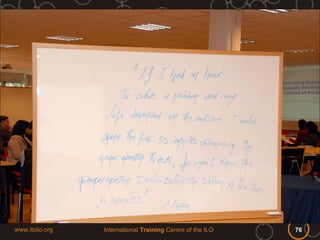 "If I had an hour
to solve a problem and my
life depended on the solution, I would
spend the first 55 minutes determining the
proper question to ask, for once I know the
proper question, I could solve the problem in less than
5 minutes"
www.itcilo.org
International Training Centre of the ILO
76